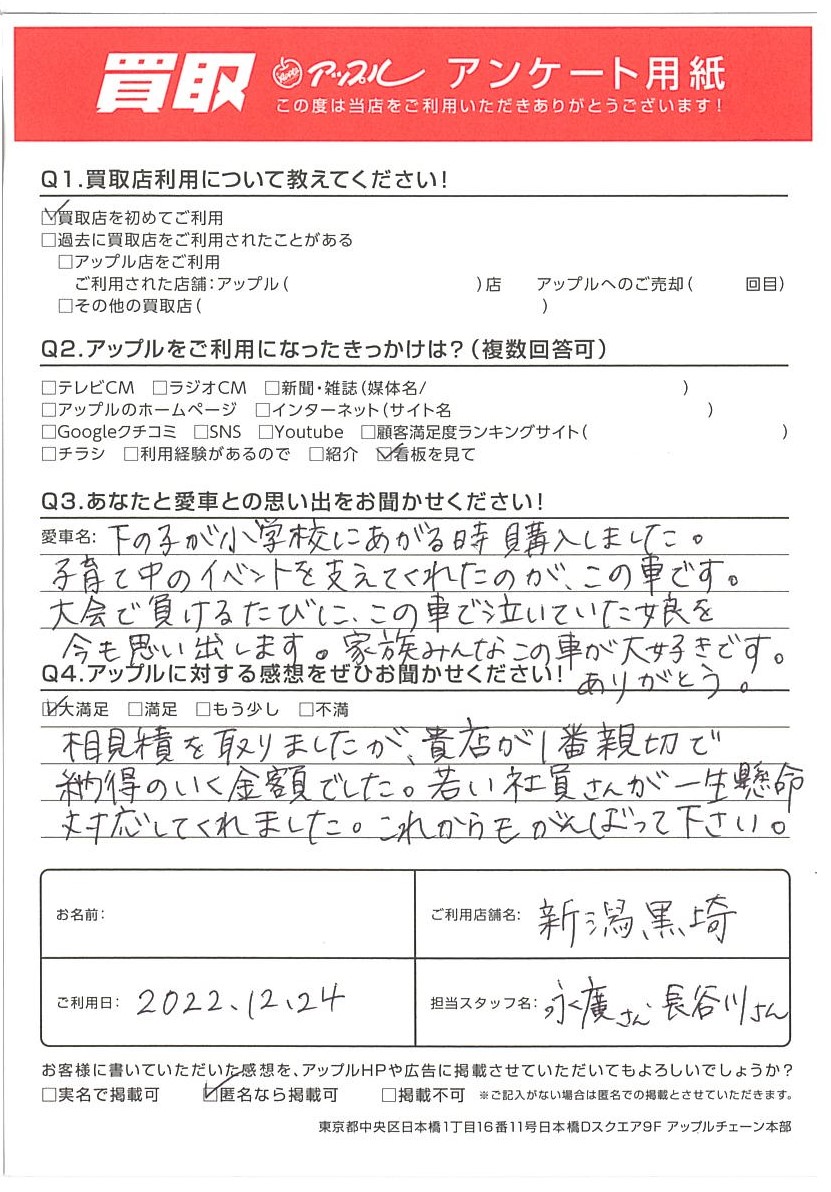 買取 アップル アンケート用紙
この度は当店をご利用いただきありがとうございます!
Q1.買取店利用について教えてください!
☑買取店を初めてご利用
□過去に買取店をご利用されたことがある
□アップル店をご利用
ご利用された店舗:アップル( )店 アップルへのご売却( 回目)
□その他の買取店( )
Q2.アップルをご利用になったきっかけは?(複数回答可)
□テレビCM □ラジオCM □新聞・雑誌(媒体名/ )
□アップルのホームページ □インターネット(サイト名 )
□Googleクチコミ □SNS □Youtube □顧客満足度ランキングサイト( )
□チラシ □利用経験があるので □紹介 ☑看板を見て
Q3.あなたと愛車との思い出をお聞かせください!
愛車名: 下の子が小学校にあがる時購入しました。
子育て中のイベントを支えてくれたのが、この車です。
大会で負けるたびに、この車で泣いていた娘を
今も思い出します。家族みんなこの車が大好きです。
ありがとう。
Q4.アップルに対する感想をぜひお聞かせください!
☑大満足 □満足 □もう少し □不満
相見積を取りましたが、貴店が1番親切で
納得のいく金額でした。若い社員さんが一生懸命
対応してくれました。これからもがんばって下さい。
お名前: ご利用店舗名: 新潟黒埼
ご利用日: 2022.12.24 担当スタッフ名: 永廣さん 長谷川さん
お客様に書いていただいた感想を、アップルHPや広告に掲載させていただいてもよろしいでしょうか?
□実名で掲載可 ☑匿名なら掲載可 □掲載不可 ※ご記入がない場合は匿名での掲載とさせていただきます。
東京都中央区日本橋1丁目16番11号日本橋Dスクエア9F アップルチェーン本部